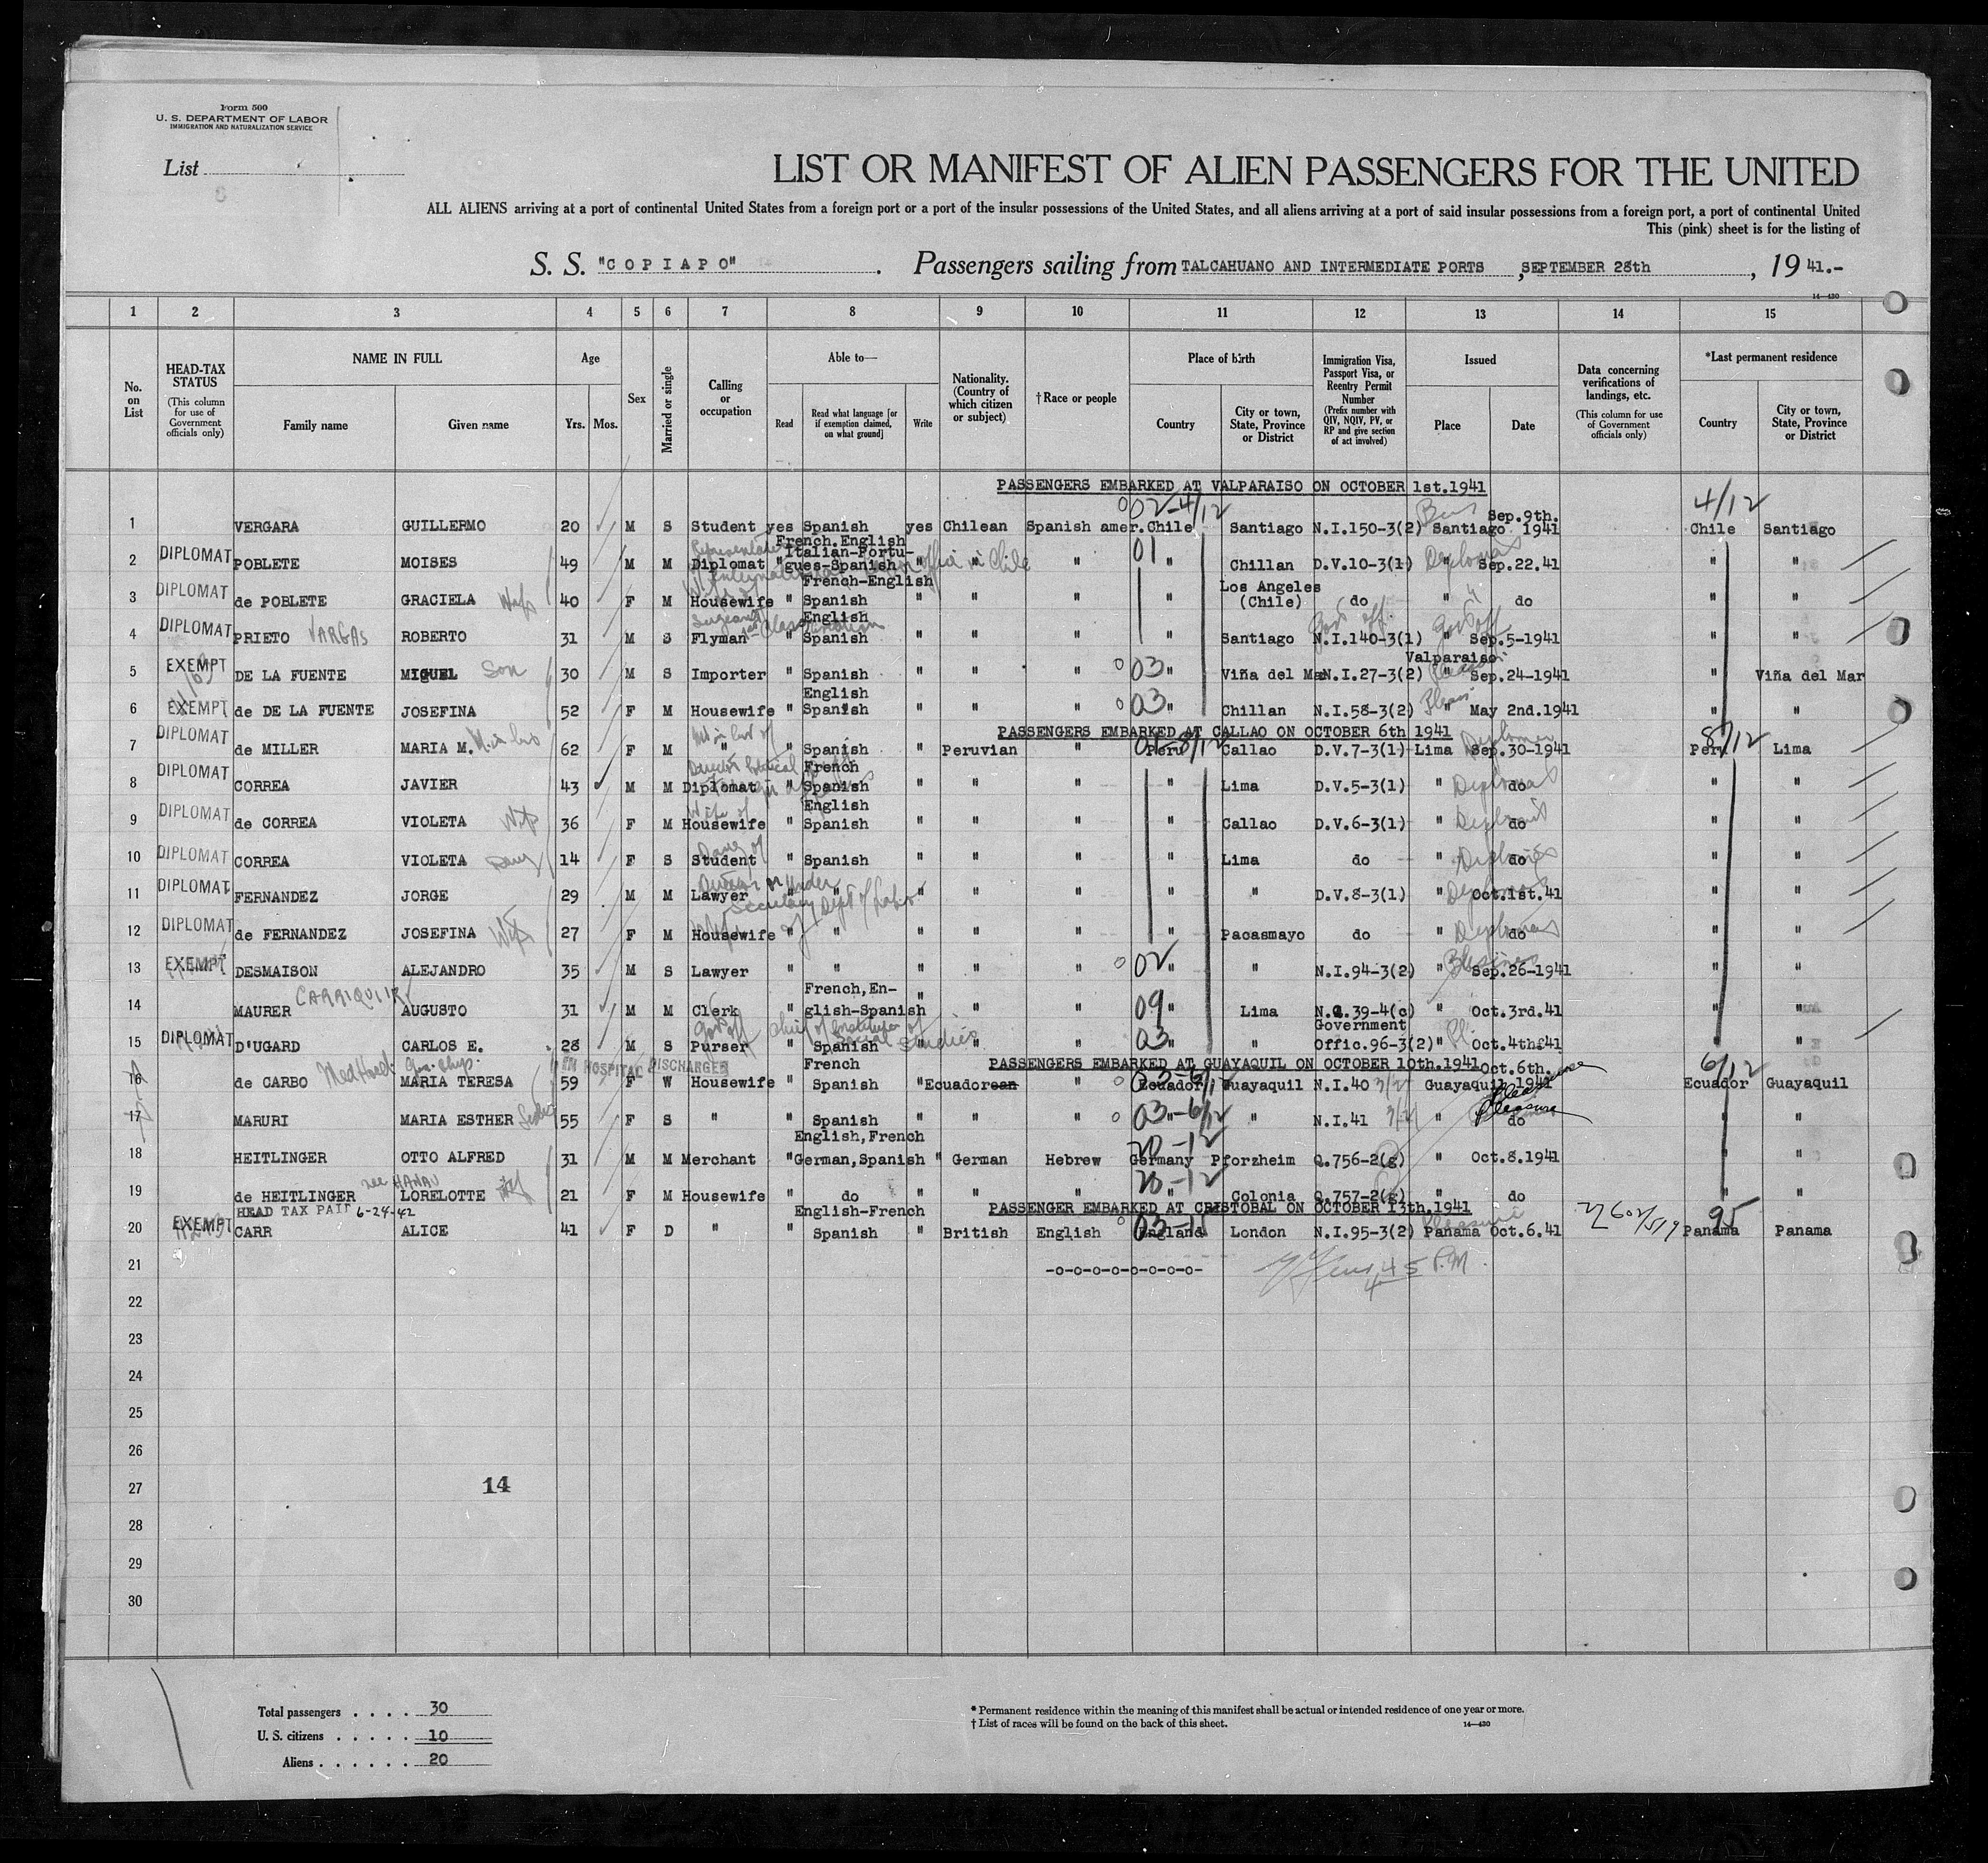 Form 500
U. S. DEPARTMENT OF LABOR
IMMIGRATION AND NATURALIZATION SERVICE
List
LIST OR MANIFEST OF ALIEN PASSENGERS FOR THE UNITED
ALL ALIENS arriving at a port of continental United States from a foreign port or a port of the insular possessions of the United States, and all aliens arriving at a port of said insular possessions from a foreign port, a port of continental United
This (pink) sheet is for the listing of
S. S. "COPIAPO" . Passengers sailing from TALCAHUANO AND INTERMEDIATE PORTS , SEPTEMBER 28th , 19 41.-
14—430
1 2 3 4 5 6 7 8 9 10 11 12 13 14 15
No. on List
HEAD-TAX STATUS (This column for use of Government officials only)
NAME IN FULL Family name Given name
Age Yrs. Mos.
Sex
Married or single
Calling or occupation
Able to— Read Read what language [or if exemption claimed, on what ground] Write
Nationality. (Country of which citizen or subject)
† Race or people
Place of birth Country City or town, State, Province or District
Immigration Visa, Passport Visa, or Reentry Permit Number (Prefix number with QIV, NQIV, PV, or RP and give section of act involved)
Issued Place Date
Data concerning verifications of landings, etc. (This column for use of Government officials only)
*Last permanent residence Country City or town, State, Province or District
PASSENGERS EMBARKED AT VALPARAISO ON OCTOBER 1st.1941
02-4/12 4/12
1 VERGARA GUILLERMO 20 M S Student yes Spanish yes Chilean Spanish amer. Chile Santiago N.I.150-3(2) Santiago Sep.9th. 1941 Chile Santiago
2 DIPLOMAT POBLETE MOISES 49 M M Diplomat " French.English Italian-Portugues-Spanish " " " 01 " Chillan D.V.10-3(1) Diplomat Sep.22.41 " "
3 DIPLOMAT de POBLETE GRACIELA Wife 40 F M Housewife " French-English Spanish " " " " Los Angeles (Chile) do " do " "
4 DIPLOMAT PRIETO VARGAS ROBERTO 31 M S Flyman " English Spanish " " " " Santiago N.I.140-3(1) " Sep.5-1941 " "
5 EXEMPT DE LA FUENTE MIGUEL Son 30 M S Importer " Spanish " " " 03 " Viña del Mar N.I.27-3(2) Valparaiso " Sep.24-1941 " Viña del Mar
6 EXEMPT de DE LA FUENTE JOSEFINA 52 F M Housewife " English Spanish " " " 03 " Chillan N.I.58-3(2) " May 2nd.1941 " "
PASSENGERS EMBARKED AT CALLAO ON OCTOBER 6th 1941
7 DIPLOMAT de MILLER MARIA M. 62 F M " " Spanish " Peruvian " Peru Callao D.V.7-3(1) Lima Sep.30-1941 8/12 Peru Lima
8 DIPLOMAT CORREA JAVIER 43 M M Diplomat " French Spanish " " " " Lima D.V.5-3(1) " Diplomat do " "
9 DIPLOMAT de CORREA VIOLETA Wife 36 F M Wife of Housewife " English Spanish " " " " Callao D.V.6-3(1) " Diplomat do " "
10 DIPLOMAT CORREA VIOLETA 14 F S Student " Spanish " " " " Lima do " do " "
11 DIPLOMAT FERNANDEZ JORGE 29 M M Lawyer " " " " " " " D.V.8-3(1) " Oct.1st.41 " "
12 DIPLOMAT de FERNANDEZ JOSEFINA Wife 27 F M Housewife " " " " " " Pacasmayo do " do " "
13 EXEMPT DESMAISON ALEJANDRO 35 M S Lawyer " " " " " 02 " " N.I.94-3(2) " Sep.26-1941 " "
14 MAURER CARRIQUIIR AUGUSTO 31 M M Clerk " French, English-Spanish " " " 09 " Lima N.Q.39-4(c) " Oct.3rd.41 " "
15 DIPLOMAT D'UGARD CARLOS E. 28 M S Purser " Spanish " " " 03 " " Government Offic.96-3(2) " Oct.4th.41 " "
IN HOSPITAL DISCHARGED
PASSENGERS EMBARKED AT GUAYAQUIL ON OCTOBER 10th.1941
16 de CARBO MARIA TERESA 59 F W Housewife French Spanish " Ecuadorean " Ecuador Guayaquil N.I.40 3/2 Guayaquil Oct.6th. 1941 Pleasure 6/12 Ecuador Guayaquil
17 MARURI MARIA ESTHER 55 F S " " Spanish " " " 03-6/12 " " N.I.41 3/2 " Pleasure do " "
18 HEITLINGER OTTO ALFRED 31 M M Merchant " English, French German, Spanish " German Hebrew 20-12 Germany Pforzheim Q.756-2(g) " Oct.8.1941 " "
19 de HEITLINGER nee HANAU LORELOTTE 21 F M Housewife " do " " " 20-12 " Colonia Q.757-2(g) " do " "
HEAD TAX PAID 6-24-42
PASSENGER EMBARKED AT CRISTOBAL ON OCTOBER 13th.1941
20 EXEMPT CARR ALICE 41 F D " " English-French Spanish " British English England London N.I.95-3(2) Panama Pleasure Oct.6.41 95 Panama Panama
21 -o-o-o-o-o-o-o-o-
22
23
24
25
26
27 14
28
29
30
Total passengers . . . . 30
U. S. citizens . . . . . 10
Aliens . . . . . . 20
* Permanent residence within the meaning of this manifest shall be actual or intended residence of one year or more.
† List of races will be found on the back of this sheet. 14—430